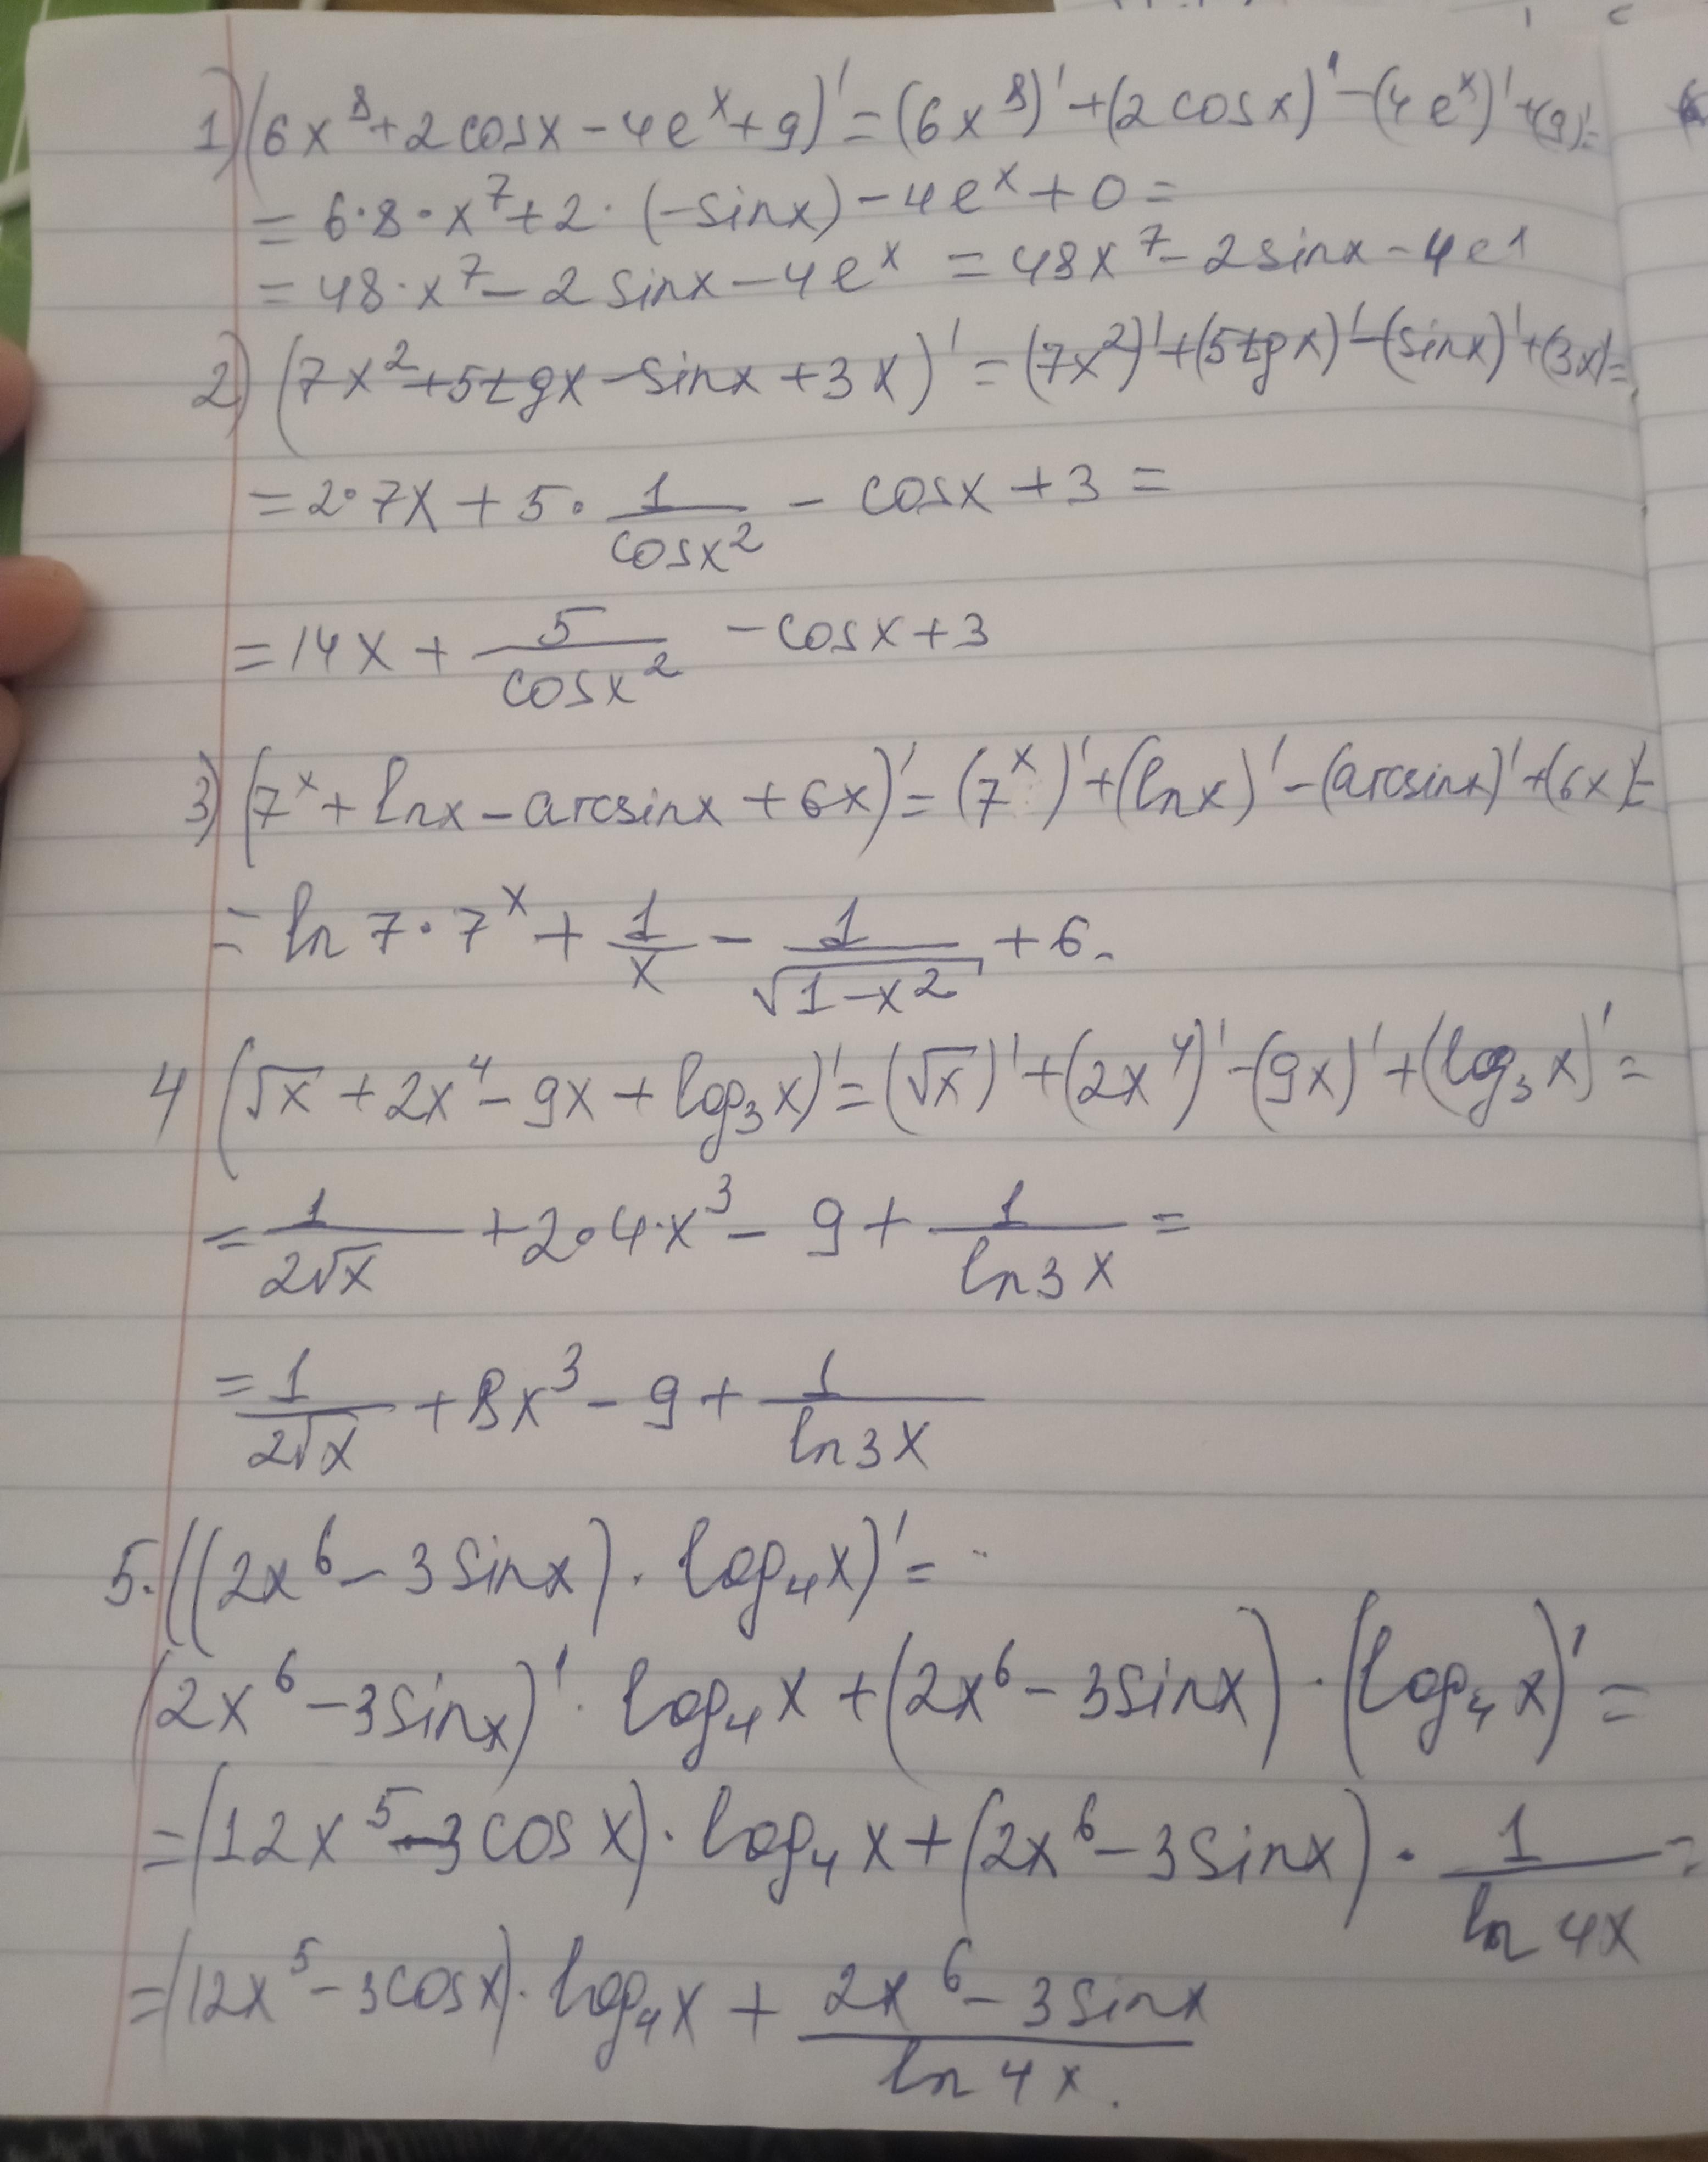 1) (6x⁸+2cosx-4eˣ+9)'=(6x⁸)'+(2cosx)'-(4eˣ)'+(9)'=
=6·8·x⁷+2·(-sinx)-4eˣ+0=
=48·x⁷-2sinx-4eˣ=48x⁷-2sinx-4e1
2) (7x²+5tgx-sinx+3x)'=(7x²)'+(5tgx)'-(sinx)'+(3x)'=
=2·7x+5·1/cosx²-cosx+3=
=14x+5/cosx²-cosx+3
3) (7ˣ+lnx-arcsinx+6x)'=(7ˣ)'+(lnx)'-(arcsinx)'+(6x)'=
=ln7·7ˣ+1/x-1/√(1-x²)+6.
4 (√x+2x⁴-9x+log₃x)'=(√x)'+(2x⁴)'-(9x)'+(log₃x)'=
=1/2√x+2·4·x³-9+1/ln3x=
=1/2√x+8x³-9+1/ln3x
5. ((2x⁶-3sinx)·log₄x)'=
(2x⁶-3sinx)'·log₄x+(2x⁶-3sinx)·(log₄x)'=
=(12x⁵-3cosx)·log₄x+(2x⁶-3sinx)·1/ln4x=
=(12x⁵-3cosx)·log₄x+2x⁶-3sinx/ln4x.